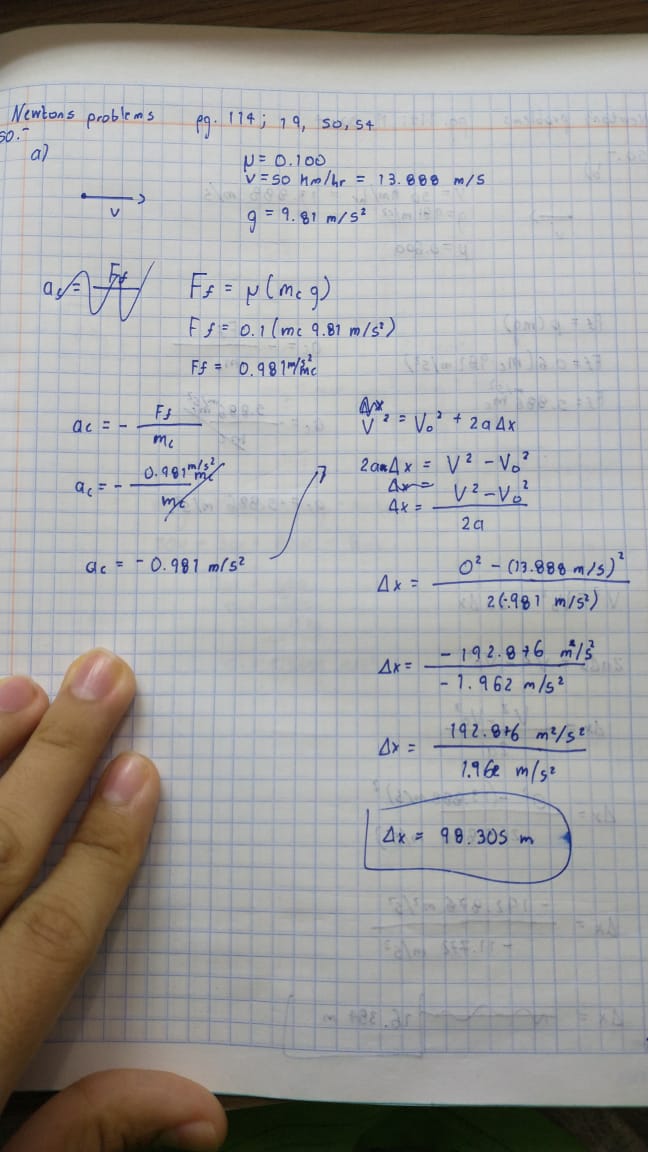 Newtons problems pg. 114; 19, 50, 54
50.-
a)
μ = 0.100
v = 50 km/hr = 13.888 m/s
g = 9.81 m/s²
v
Ff = μ(mc g)
Ff = 0.1 (mc 9.81 m/s²)
Ff = 0.981 m/s² mc
ac = - Ff / mc
ac = - 0.981 m/s² mc / mc
ac = - 0.981 m/s²
V² = V₀² + 2a Δx
2a Δx = V² - V₀²
Δx = V² - V₀² / 2a
Δx = 0² - (13.888 m/s)² / 2(-.981 m/s²)
Δx = - 192.876 m²/s² / - 1.962 m/s²
Δx = 192.876 m²/s² / 1.962 m/s²
Δx = 98.305 m